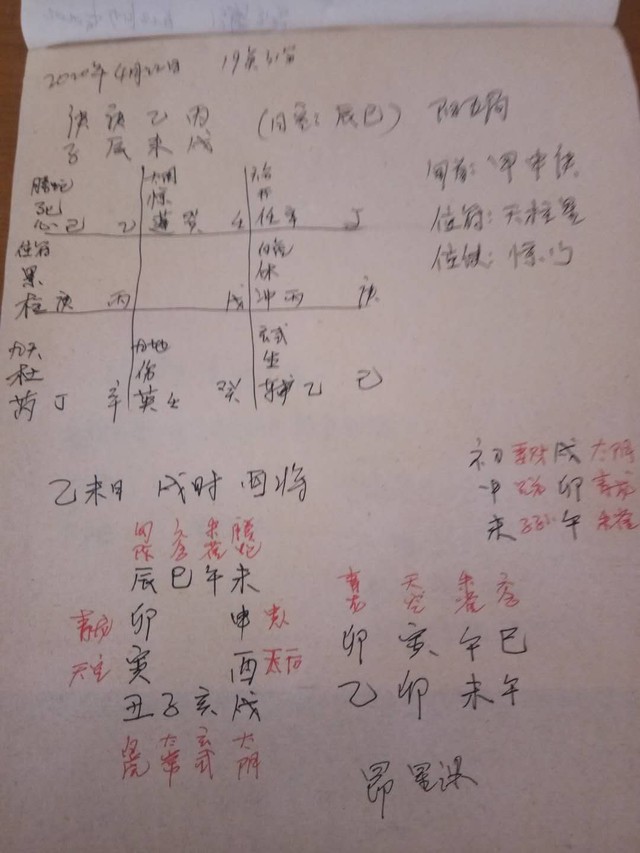 2020年4月22日 19点51分
庚 庚 乙 丙 (日空:辰巳) 阳五局
子 辰 未 戌
旬首:甲申庚
值符:天柱星
值使:惊门
螣蛇
死
心 己 乙
太阴
惊
蓬 癸 壬
六合
开
任 辛 丁
值符
景
柱 庚 丙
戊
白虎
休
冲 丙 庚
九天
杜
芮 丁 辛
九地
伤
英 壬 癸
玄武
生
辅 乙 己
乙未日 戌时 酉将
初 戌 太阴
中 卯 青龙
末 午 朱雀
勾陈 六合 朱雀 螣蛇
辰 巳 午 未
青龙 卯 申 贵人
天空 寅 酉 太后
丑 子 亥 戌
白虎 太常 玄武 太阴
青龙 天空 朱雀 六合
卯 寅 午 巳
乙 卯 未 午
昴星课